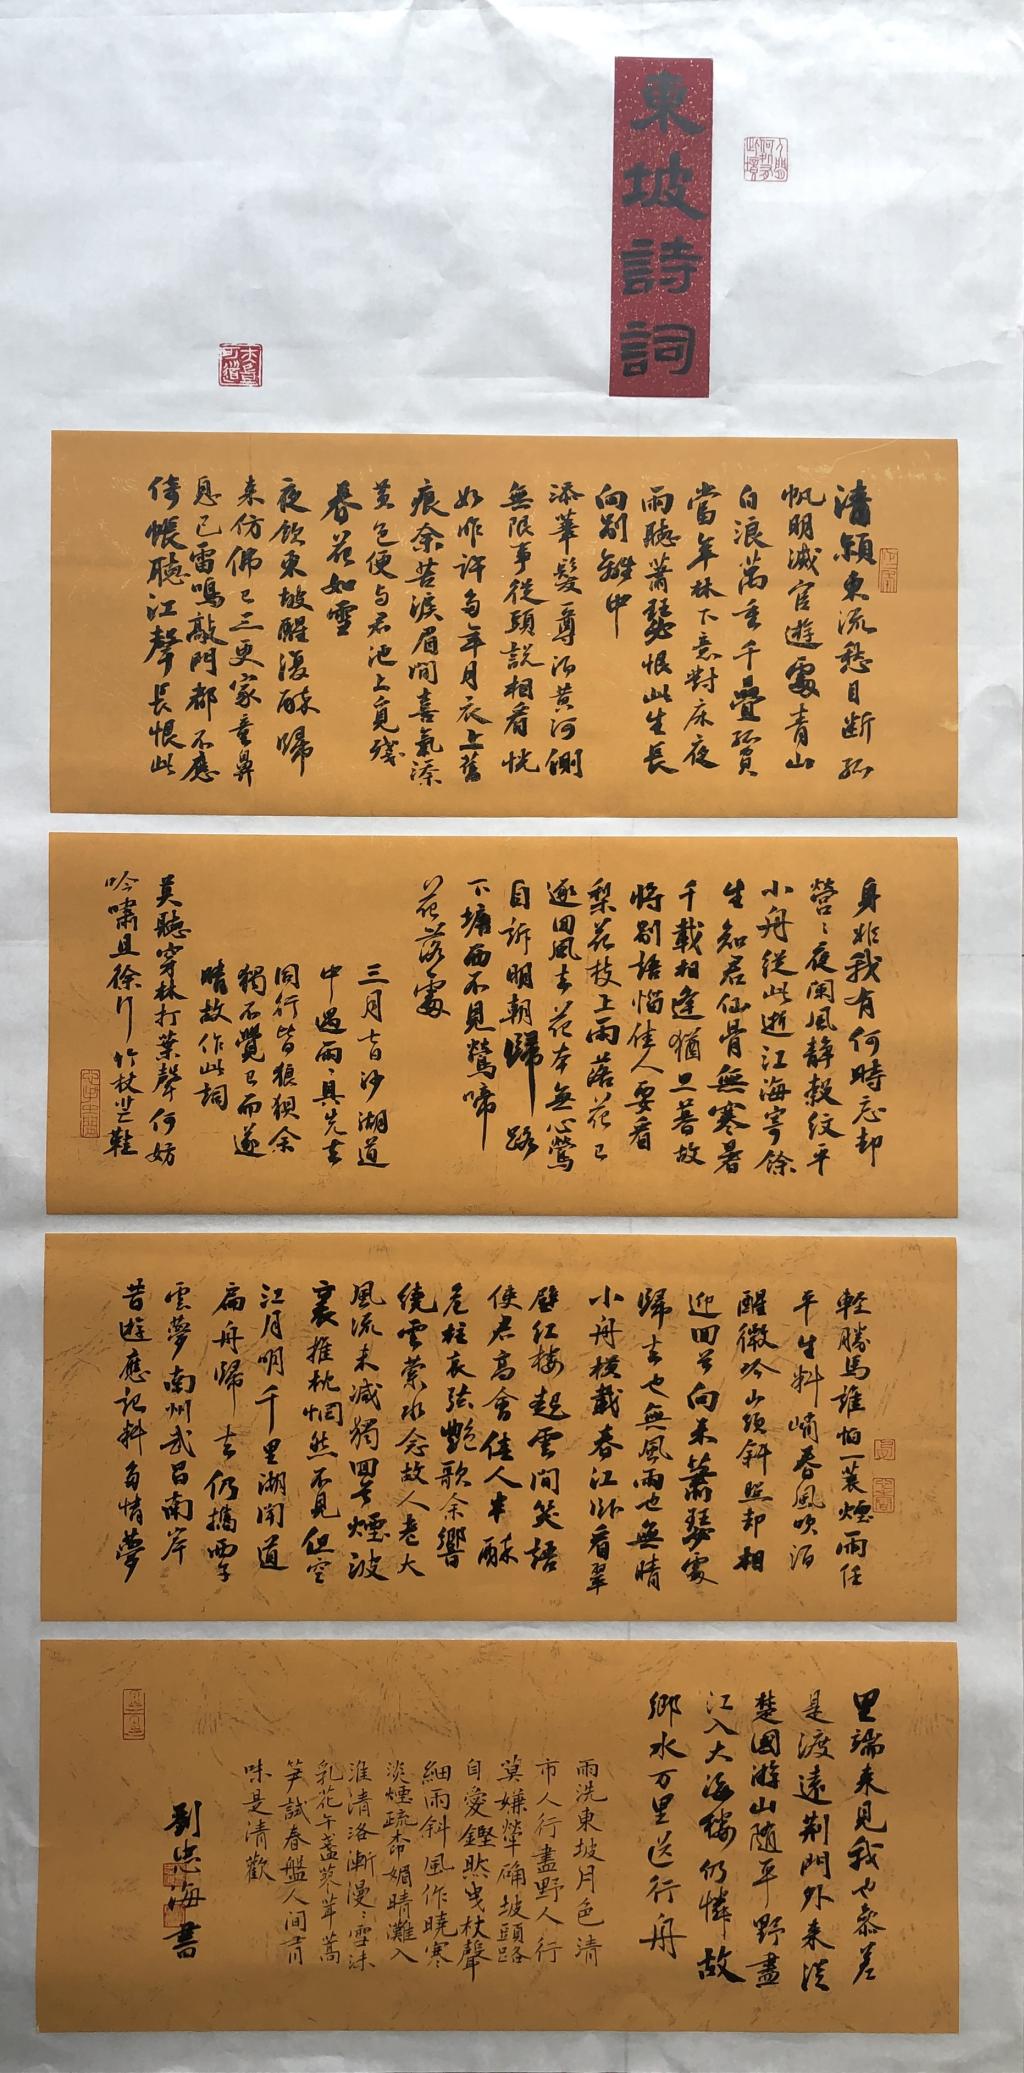 東坡詩詞
清潁東流愁目斷孤
帆明滅宦遊處青山
白浪萬重千疊孤負
當年林下意對床夜
雨聽蕭瑟恨此生長
向別離中
添華髮一尊酒黃河側
無限事從頭說相看恍
如昨許多年月衣上舊
痕余苦淚眉間喜氣添
黃色便與君池上覓殘
春花如雪
夜飲東坡醒復醉歸
來仿佛已三更家童鼻
息已雷鳴敲門都不應
倚帳聽江聲長恨此
身非我有何時忘却
營〻夜闌風靜縠紋平
小舟從此逝江海寄餘
生知君仙骨無寒暑
千載相逢猶旦暮故
將別語惱佳人要看
梨花枝上雨落花已
逐回風去花本無心鶯
自訴明朝歸路
下塘西不見鶯啼
花落處
三月七日沙湖道
中遇雨〻具先去
同行皆狼狽余
獨不覺已而遂
晴故作此詞
莫聽穿林打葉聲何妨
吟嘯且徐行竹杖芒鞋
輕勝馬誰怕一蓑煙雨任
平生料峭春風吹酒
醒微吟山頭斜照却相
迎回首向來蕭瑟處
歸去也無風雨也無晴
小舟橫截春江卧看翠
壁紅樓起雲間笑語
使君高會佳人半酥
危柱哀弦艷歌余響
繞雲縈水念故人老大
風流未減獨回首煙波
裏推枕惘然不見但空
江月明千里湖聞道
扁舟歸去仍攜西子
雲夢南州武昌南岸
昔遊應記料多情夢
里端來見我也參差
是渡遠荊門外來從
楚國游山隨平野盡
江入大海樓仍憐故
鄉水万里送行舟
雨洗東坡月色清
市人行盡野人行
莫嫌犖确坡頭路
自愛鏗然曳杖聲
細雨斜風作曉寒
淡煙疏柰媚晴灘入
淮清洛漸漫〻雪沫
乳花午盞蓼茸蒿
笋試春盤人间有
味是清歡
劉忠海書